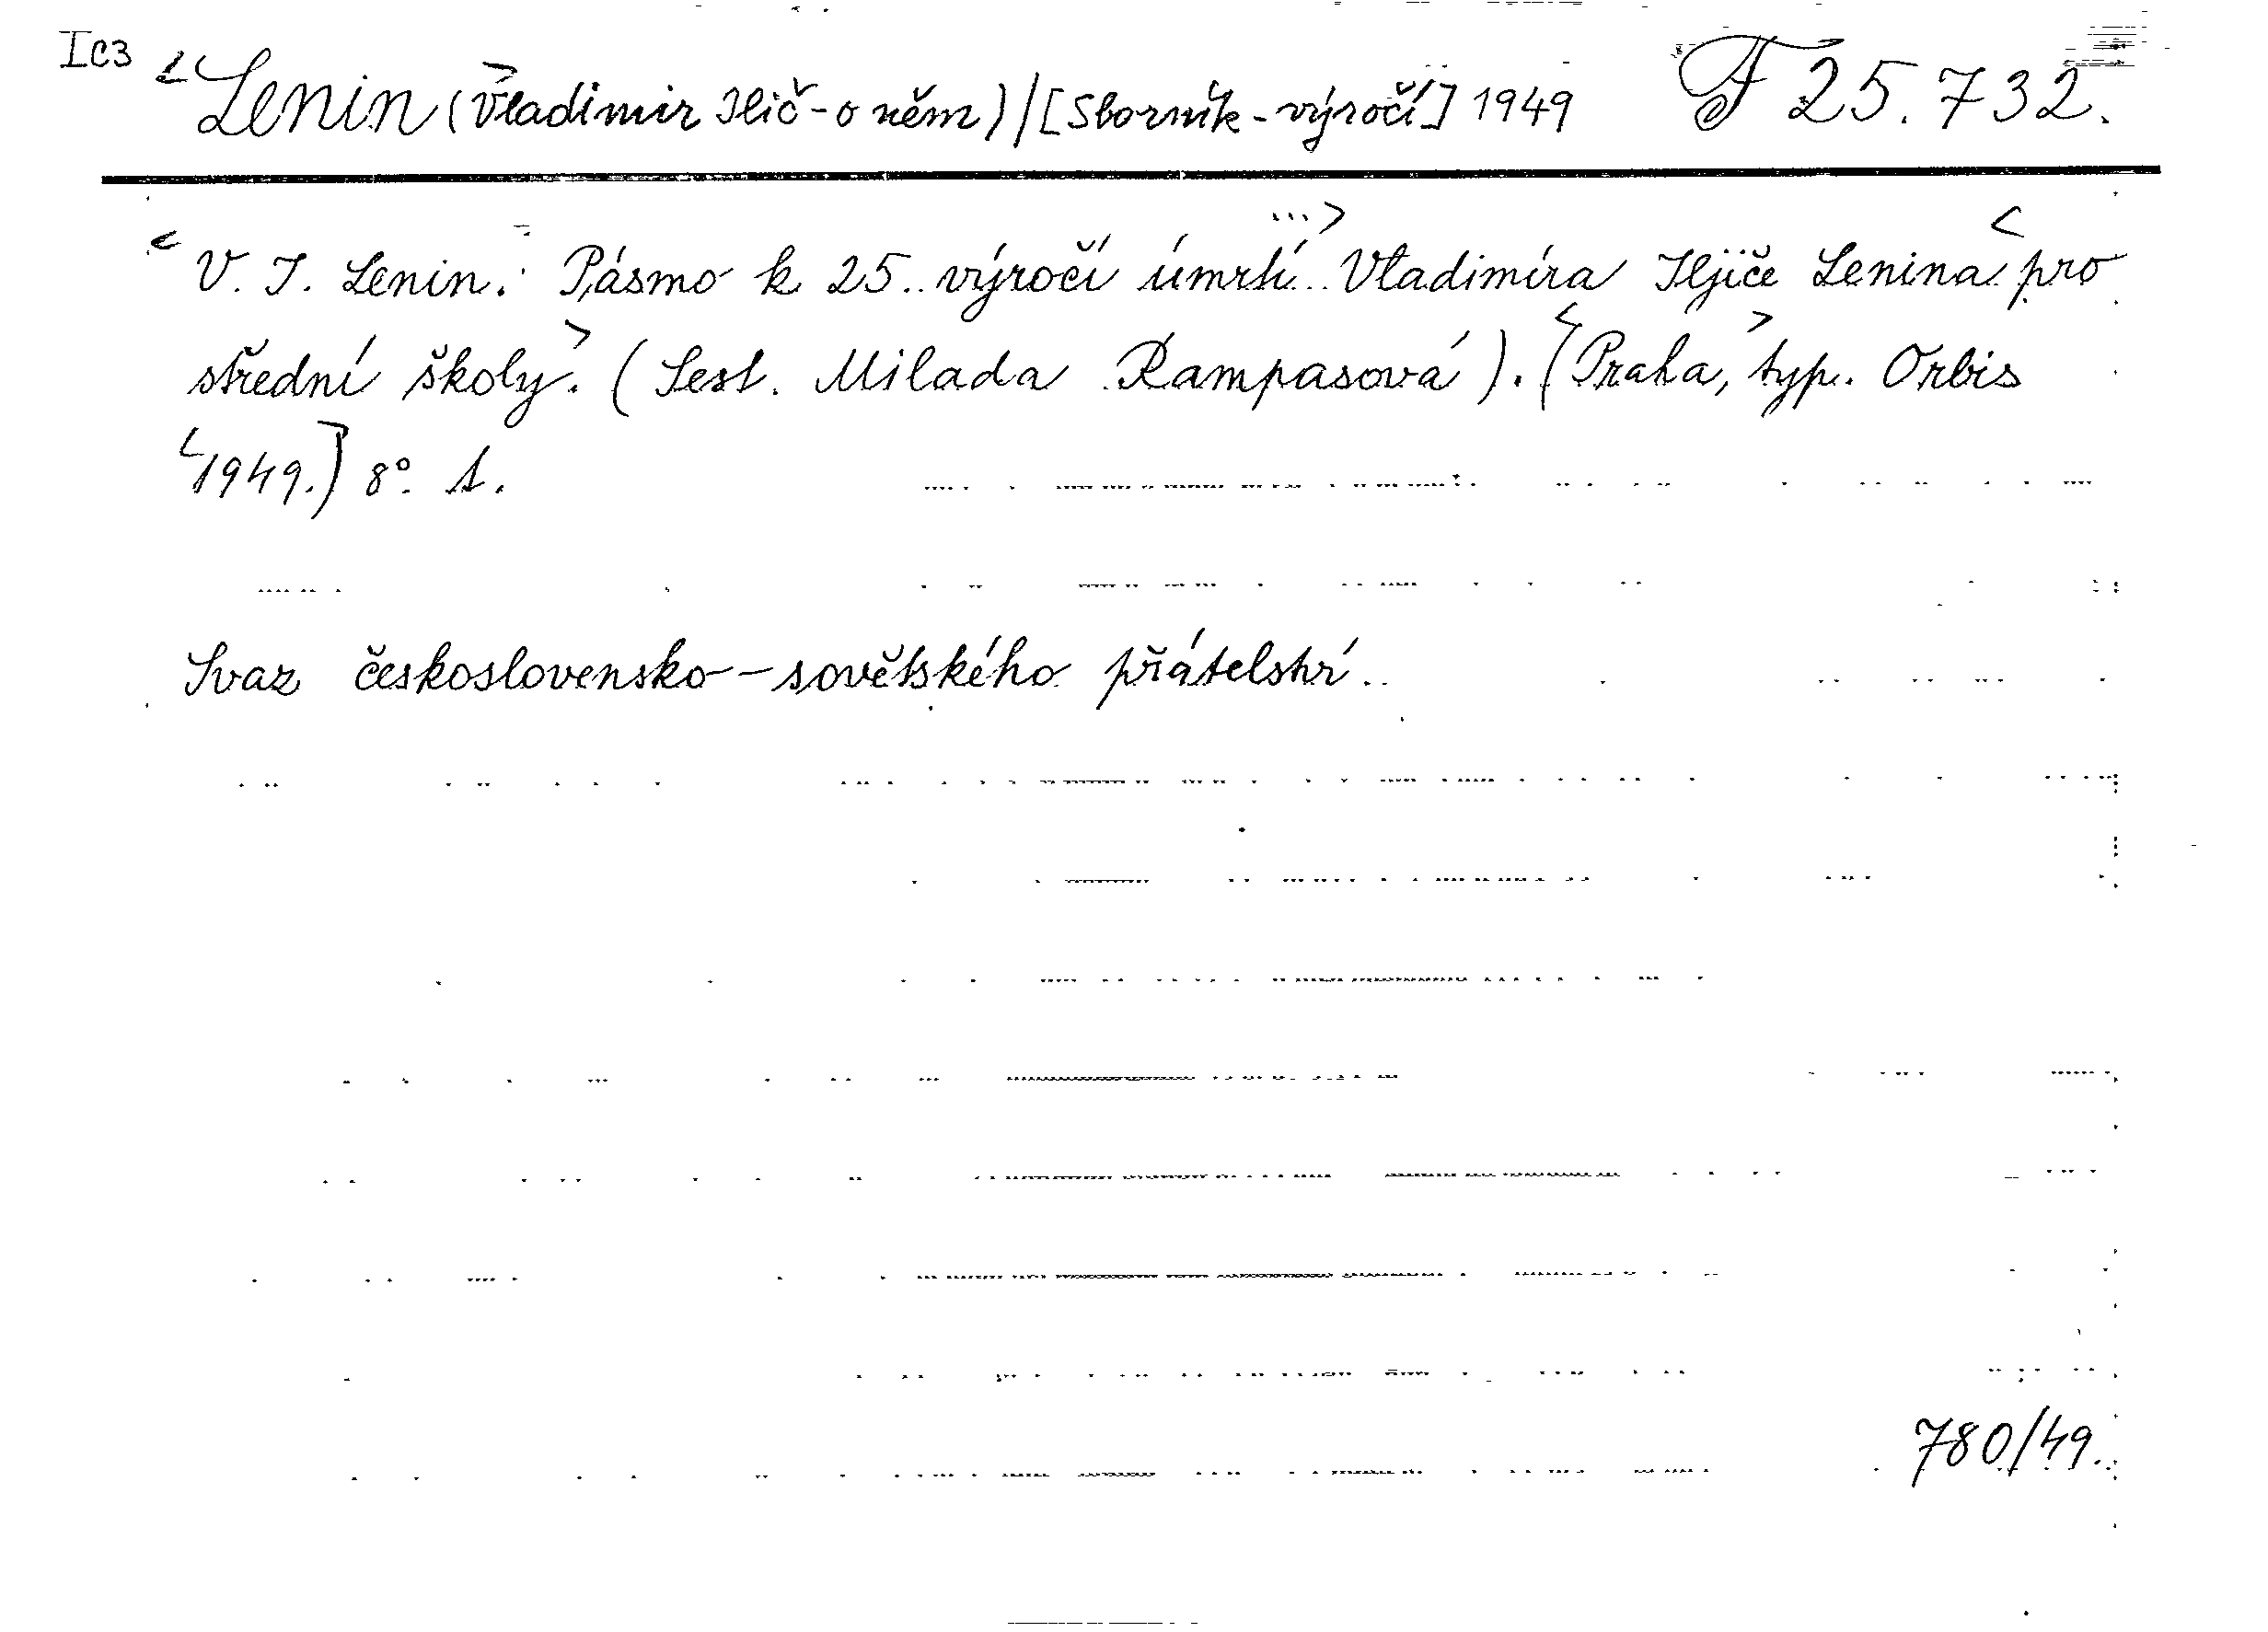 Ic3 Lenin (Vladimir Ilič - o něm) / [Sborník - výročí] 1949 F 25.732.
V. I. Lenin. Pásmo k 25. výročí úmrtí ... Vladimíra Iljiče Lenina pro
střední školy. (Sest. Milada Rampasová). [Praha, typ. Orbis
1949.] 8°. s.
Svaz československo-sovětského přátelství.
780/49.